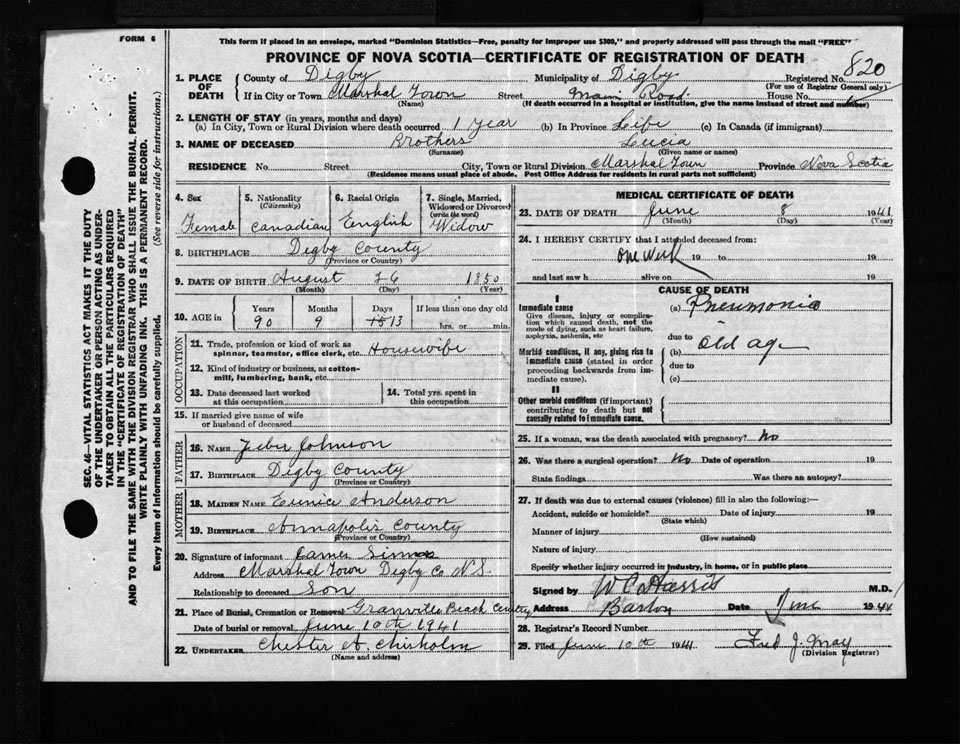 FORM 6
This form if placed in an envelope, marked "Dominion Statistics—Free, penalty for improper use $300," and properly addressed will pass through the mail "FREE"
PROVINCE OF NOVA SCOTIA—CERTIFICATE OF REGISTRATION OF DEATH
820
1. PLACE OF DEATH County of Digby Municipality of Digby Registered No.
(For use of Registrar General only)
If in City or Town Marshal Town Street Main Road House No.
(Name) (If death occurred in a hospital or institution, give the name instead of street and number)
2. LENGTH OF STAY (in years, months and days)
(a) In City, Town or Rural Division where death occurred 1 year (b) In Province Life (c) In Canada (if immigrant)
3. NAME OF DECEASED Brothers Lucia
(Surname) (Given name or names)
RESIDENCE No. Street City, Town or Rural Division Marshal Town Province Nova Scotia
(Residence means usual place of abode. Post Office Address for residents in rural parts not sufficient)
4. Sex 5. Nationality (Citizenship) 6. Racial Origin 7. Single, Married, Widowed or Divorced (write the word)
Female Canadian English Widow
8. BIRTHPLACE Digby County
(Province or County)
9. DATE OF BIRTH August 26 1850
(Month) (Day) (Year)
10. AGE in Years Months Days If less than one day old
90 9 15 13 hrs. or min.
OCCUPATION
11. Trade, profession or kind of work as spinner, teamster, office clerk, etc. Housewife
12. Kind of industry or business, as cotton-mill, lumbering, bank, etc.
13. Date deceased last worked at this occupation 14. Total yrs. spent in this occupation
15. If married give name of wife or husband of deceased
FATHER
16. NAME Johnson
17. BIRTHPLACE Digby County
(Province or County)
MOTHER
18. MAIDEN NAME Eunice Anderson
19. BIRTHPLACE Annapolis County
(Province or County)
20. Signature of informant
Address Marshal Town Digby Co N.S.
Relationship to deceased Son
21. Place of Burial, Cremation or Removal Granville Beach
Date of burial or removal June 10th 1941
22. UNDERTAKER Chester A. Chisholm
(Name and address)
MEDICAL CERTIFICATE OF DEATH
23. DATE OF DEATH June 8 1941
(Month) (Day)
24. I HEREBY CERTIFY that I attended deceased from:
one week 19 to 19
and last saw h alive on 19
CAUSE OF DEATH
I
Immediate cause
Give disease, injury or complication which caused death, not the mode of dying, such as heart failure, asphyxia, asthenia, etc
(a) Pneumonia
due to
Morbid conditions, if any, giving rise to immediate cause (stated in order proceeding backwards from immediate cause).
(b) old age
due to
(c)
II
Other morbid conditions (if important) contributing to death but not causally related to immediate cause.
25. If a woman, was the death associated with pregnancy? No
26. Was there a surgical operation? No Date of operation 19
State findings Was there an autopsy?
27. If death was due to external causes (violence) fill in also the following:
Accident, suicide or homicide? Date of injury 19
(State which)
Manner of injury
(How sustained)
Nature of injury
Specify whether injury occurred in industry, in home, or in public place
Signed by W C Harris M.D.
Address Barton Date June 1941
28. Registrar's Record Number
29. Filed June 10th 1941 Fred J. May
(Division Registrar)
SEC. 46—VITAL STATISTICS ACT MAKES IT THE DUTY
OF THE UNDERTAKER OR PERSON ACTING AS UNDER-
TAKER TO OBTAIN ALL THE PARTICULARS REQUIRED
IN THE "CERTIFICATE OF REGISTRATION OF DEATH"
AND TO FILE THE SAME WITH THE DIVISION REGISTRAR WHO SHALL ISSUE THE BURIAL PERMIT.
WRITE PLAINLY WITH UNFADING INK. THIS IS A PERMANENT RECORD.
Every item of information should be carefully supplied. (See reverse side for instructions.)